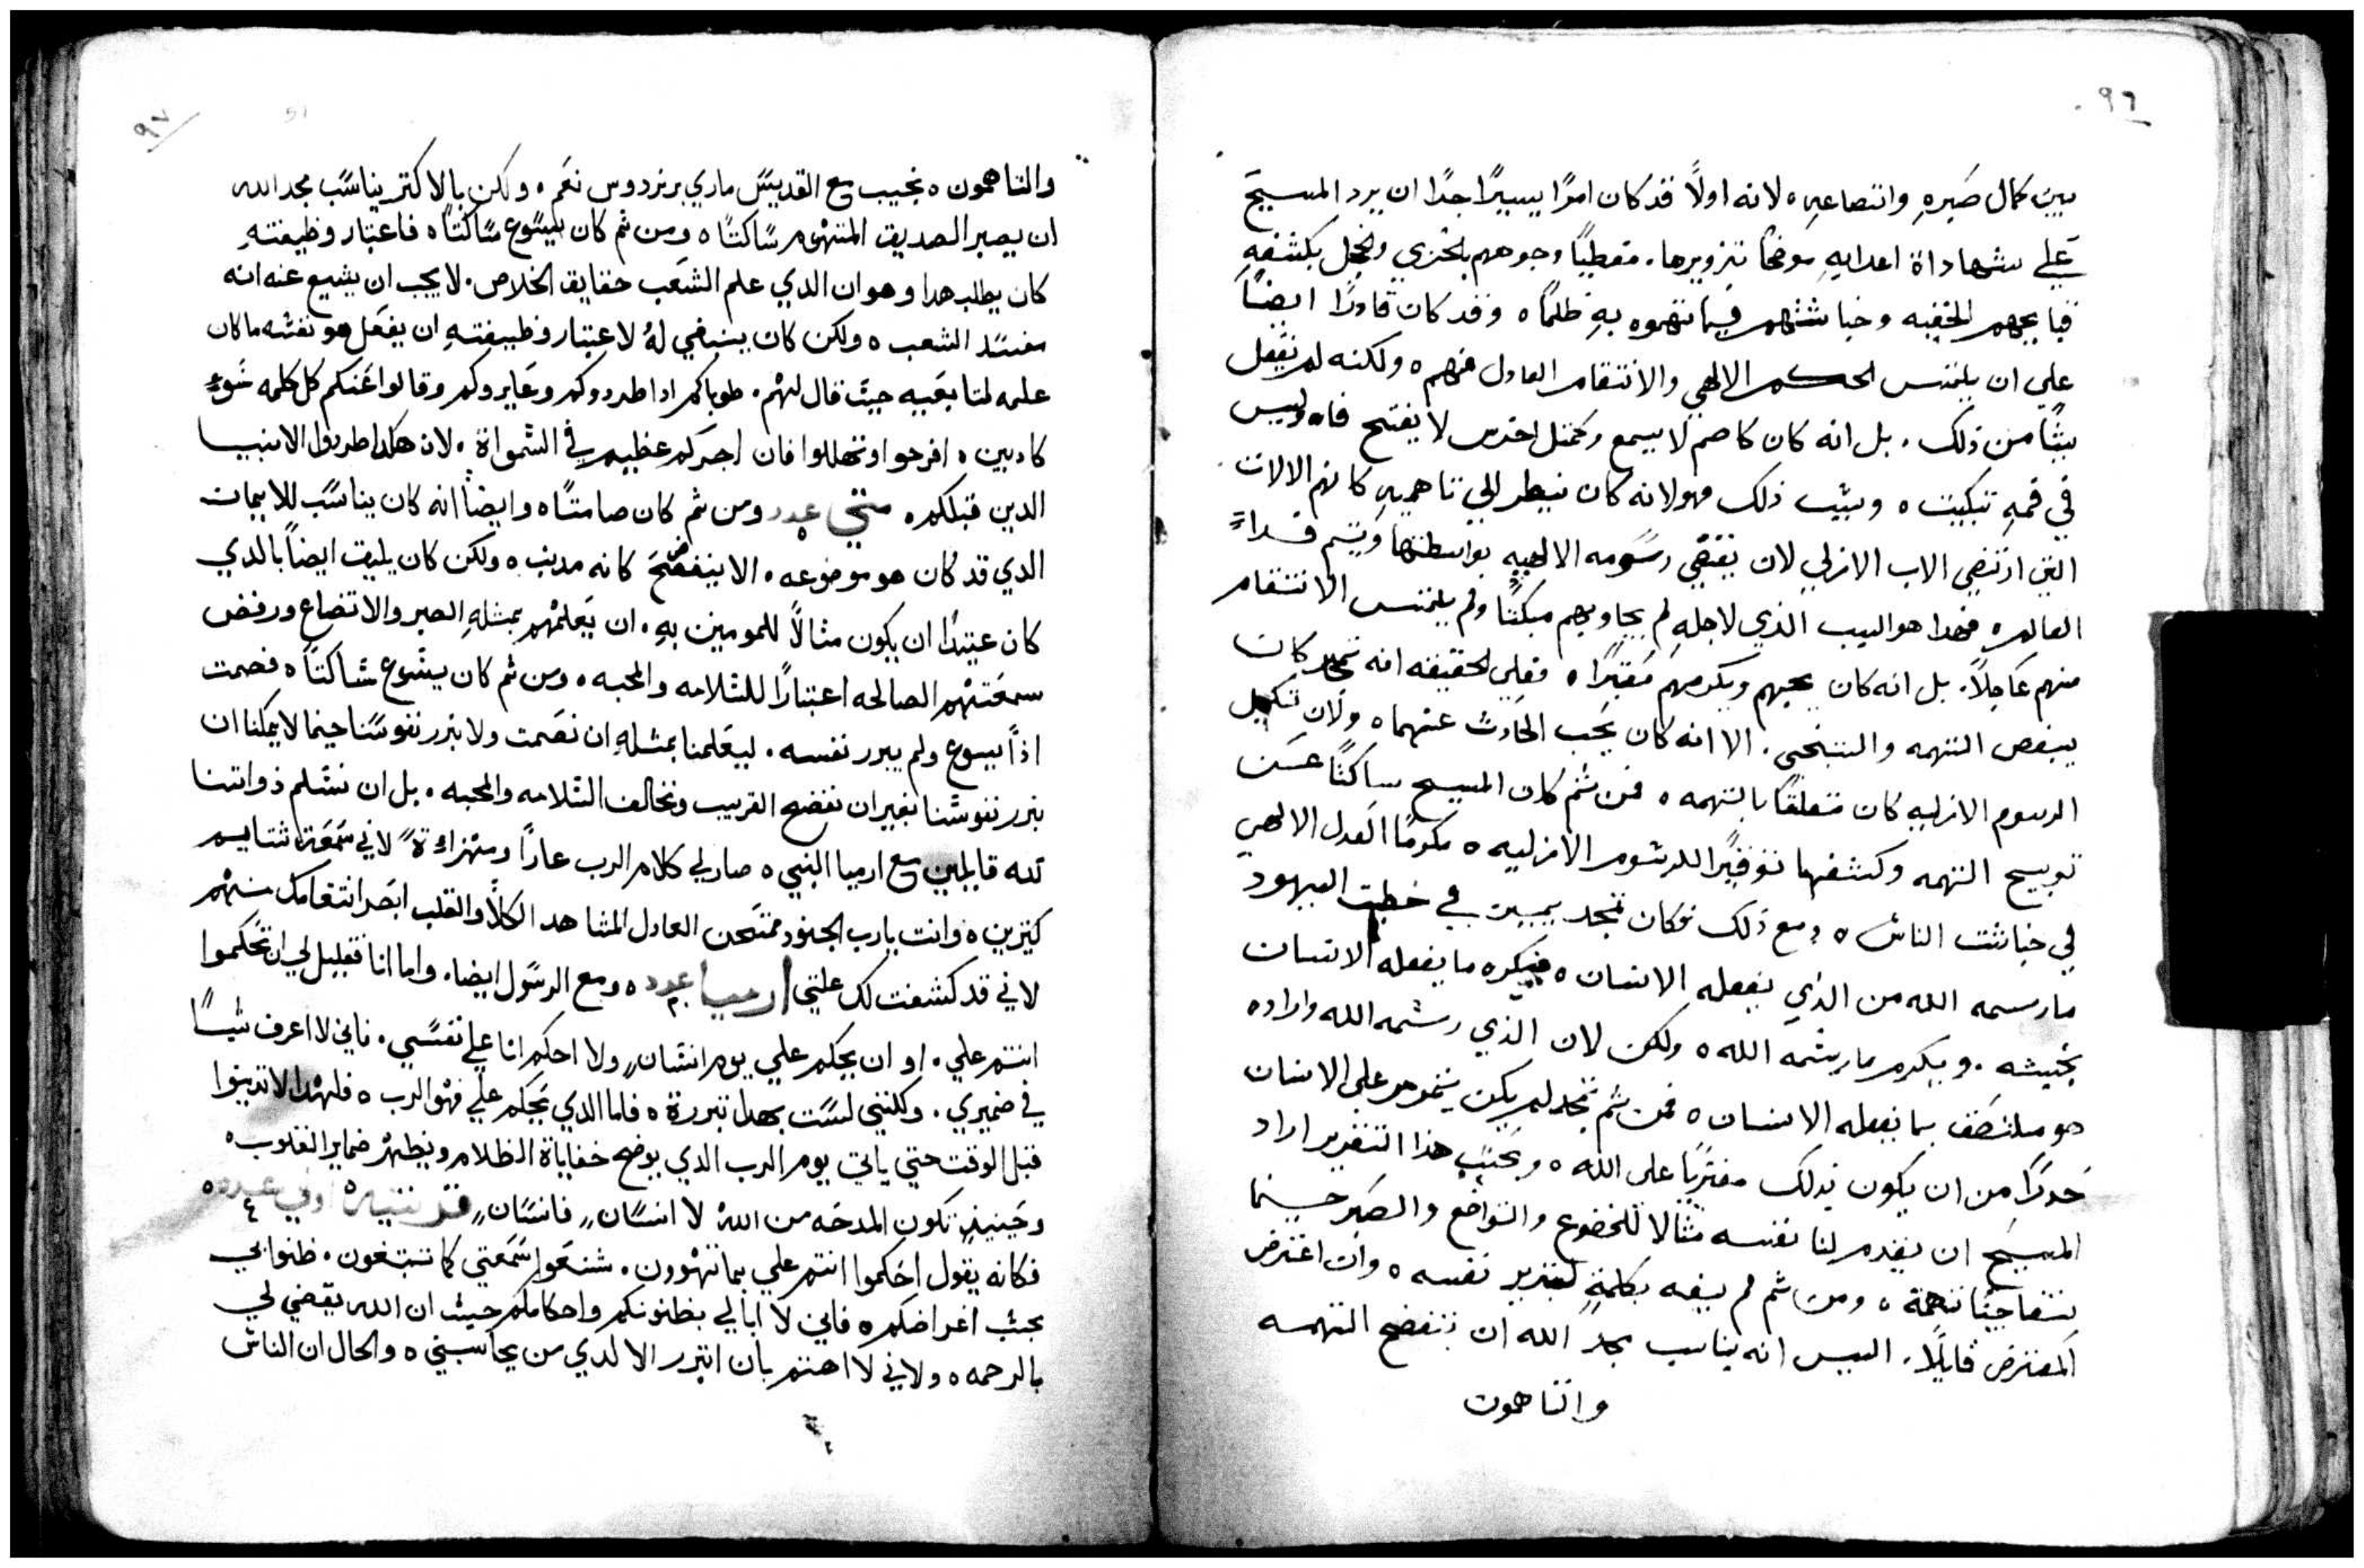 ٩٦
بين كمال صبره واتضاعه ه لانه اولًا قد كان امرًا يسيرًا جدًا ان يرد المسيح
علي شهاداة اعدايهِ موضحًا تزويرها. مغطيًا وجوههم بالخزي والخجل بكشفهِ
قبايحهم الخفيه وخباثتهم فيما تتهموه بهِ ظلمًا ه وقد كان قادرًا ايضًا
علي ان يلتمس الحكم الالهي والانتقام العادل منهم ه ولكنه لم يفعل
شيًا من ذلك. بل انه كان كاصم لا يسمع وكمثل اخرس لا يفتح فاه وليس
في فمهِ تبكيت ه وسبب ذلك فهو لانه كان ينظر الي تاهميهِ كانهم الالات
التي ارتضي الاب الازلي لان يقضي رسومه الالهيه بواسطتها ويتم فداءً
العالم ه فهدا هو السبب الذي لاجلهِ لم يجاوبهم مبكتًا ولم يلتمس الانتقام
منهم عاجلًا. بل انه كان يحبهم ويكرمهم مُعتبرًا ه فعلي الحقيقه انه تمجد كان
يبغض التهمه والتجني. الا انه كان يحب الحادث عنهما ه ولان تكميل
الرسوم الازليه كان متعلقًا بالتهمه ه فمن ثم كان المسيح ساكتًا عن
توبيح التهمه وكشفها توقيرًا للرشوم الازليه ه مكرمًا العدل الالهي
في خباثت الناس ه ومع ذلك فكان تمجد يميز في خطية اليهود
ما رسمه الله من الذي يفعله الانسان ه فيكره ما يفعله الانسان
بخبيثه. ويكرم ما رشمه الله ه ولكن لان الذي رشمه الله واراده
هو ملتصق بما يفعله الانسان ه فمن ثم تمجد لم يكن يتذمر على الانسان
حذرًا من ان يكون بذلك مفتريًا على الله ه وبحسب هذا التقرير اراد
المسيح ان يقدم لنا نفسه مثالا للخضوع والتواضع والصبر حينما
نتفاجيًا تهمة ه ومن ثم لم يفه بكلمةٍ لتبرير نفسه ه وان اعترض
المعترض قايلًا. اليس انه يناسب مجد الله ان تنفضح التهمه
والتاهمون
٩٧
والتاهمون ه نجيب مع القديس ماري برنردوس نعم ه ولكن بالاكتر يناسب مجد الله
ان يصير الصديق المتهوم ساكتًا ه ومن ثم كان يسوع ساكتًا ه فاعتبار وظيفتهِ
كان يطلب هدا وهو ان الدي علم الشعب حقايق الخلاص. لا يجب ان يشيع عنه انه
مفسد الشعب ه ولكن كان ينبغي لهُ لاعتبار وظيفتهِ ان يفعل هو نفسه ما كان
علمه لتابعيه حيث قال لهم. طوباكم ادا طردوكم وعايروكم وقالوا عنكم كل كلمه سوءٍ
كادبين ه افرحوا وتهللوا فان اجركم عظيم في السمواة. لان هكدا طردوا الانبيا
الدين قبلكم. متي عدد ٥ ومن ثم كان صامتًا ه وايضًا انه كان يناسب للايمان
الدي قد كان هو موضوعه. الا ينفضح كانه مدنب ه ولكن كان يليق ايضًا بالدي
كان عتيدًا ان يكون مثالًا للمومنين بهِ. ان يعلمهم بمثلهِ الصبر والاتضاع ورفض
سمعتهم الصالحه اعتبارًا للسلامه والمحبه ه ومن ثم كان يسوع ساكتًا ه فصمت
ادًا يسوع ولم يبرر نفسه. ليعلمنا بمثلهِ ان نصمت ولا نبرر نفوسنا حينما لا يمكنا ان
نبرر نفوسنا بغير ان نفضح القريب ونخالف السلامه والمحبه. بل ان نسلم ذواتنا
لله قايلين مع ارميا النبي ه صار لي كلام الرب عارًا ومهزاءةً لاني سمعة شتايم
كثيرين ه وانت يارب الجنود ممتحن العادل المشاهد الكلا والقلب ابصر انتقامك منهم
لاني قد كشفت لك علتي ارميا عدد ٢٠ ه ومع الرسول ايضا. واما انا فقليل لي ان تحكموا
انتم علي. او ان يحكم علي يوم انسانٍ ولا احكم انا علي نفسي. فاني لا اعرف شيًا
في ضميري. ولكنني لست بهدا تبررة ه فاما الدي يحكم علي فهو الرب ه فلهدا لا تدينوا
قبل الوقت حتي ياتي يوم الرب الدي يوضح خفاياة الظلام ويظهر ضماير القلوب ه
وحينيدٍ تكون المدحه من اللهُ لا انسانٍ فانسانٍ قرنتيه اولي عدد ٤ ه
فكانه يقول احكموا انتم علي بما تهوون. شنعوا سمعتي كما تبتغون. ظنوا بي
بحسب اغراضكم ه فاني لا ابالي بظنونكم واحكامكم حيث ان الله يقضي لي
بالرحمه ه ولاني لا اهتم بان اتبرر الا لدي من يحاسبني ه والحال ان الناس